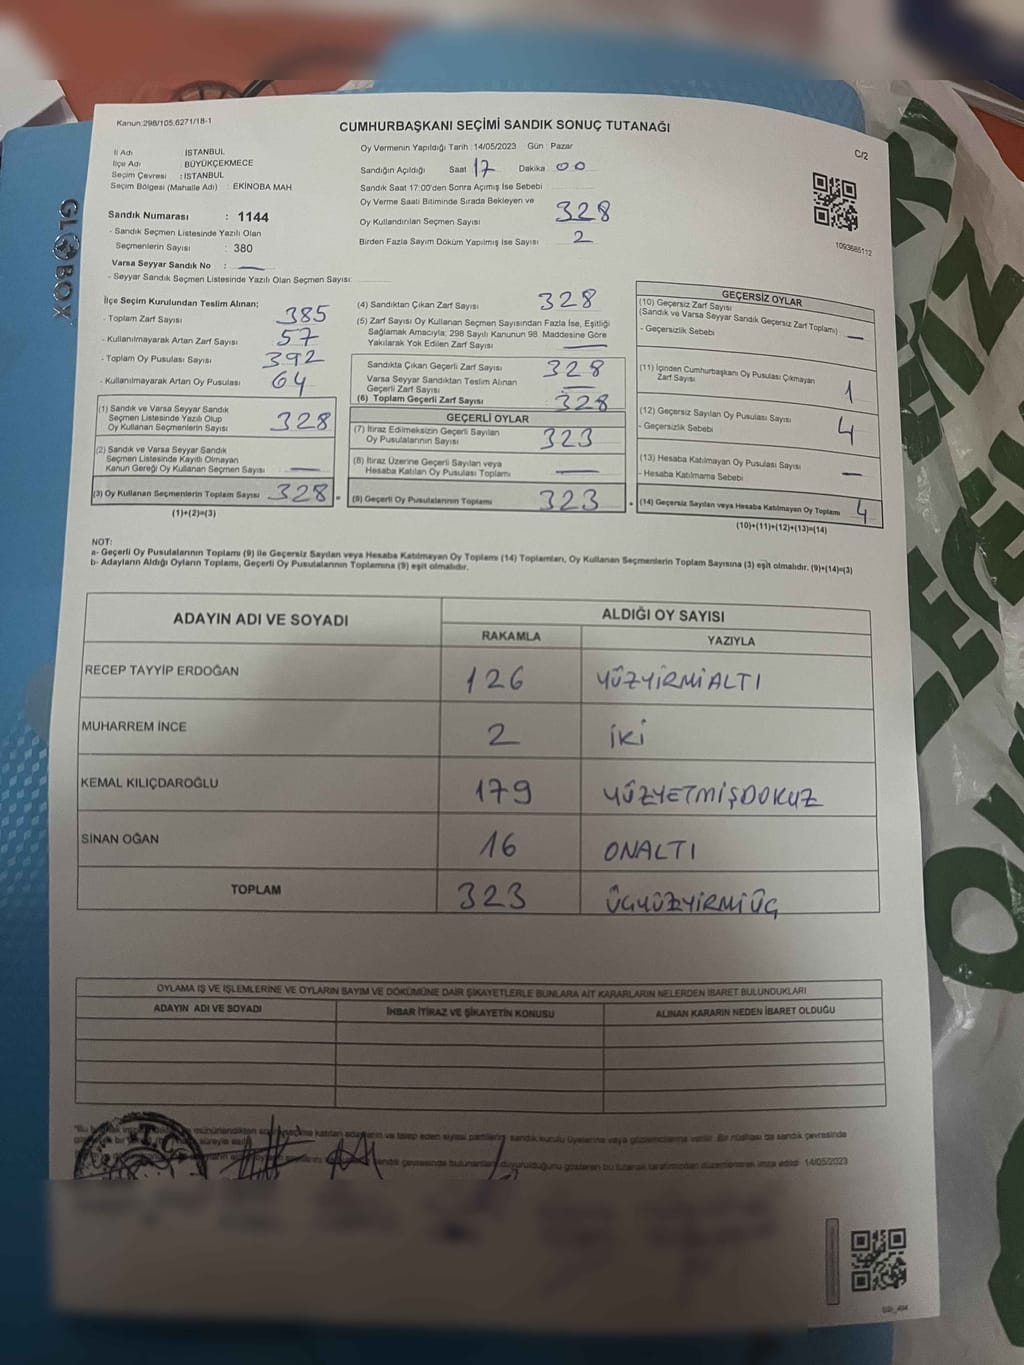 Kanun:298/105,6271/18-1
CUMHURBAŞKANI SEÇİMİ SANDIK SONUÇ TUTANAĞI
C/2
İl Adı : İSTANBUL
İlçe Adı : BÜYÜKÇEKMECE
Seçim Çevresi : İSTANBUL
Seçim Bölgesi (Mahalle Adı) : EKİNOBA MAH
Sandık Numarası : 1144
- Sandık Seçmen Listesinde Yazılı Olan
Seçmenlerin Sayısı : 380
Varsa Seyyar Sandık No : —
- Seyyar Sandık Seçmen Listesinde Yazılı Olan Seçmen Sayısı:
Oy Vermenin Yapıldığı Tarih : 14/05/2023 Gün : Pazar
Sandığın Açıldığı Saat 17 Dakika 00
Sandık Saat 17:00'den Sonra Açımış İse Sebebi
Oy Verme Saati Bitiminde Sırada Bekleyen ve
Oy Kullandırılan Seçmen Sayısı 328
Birden Fazla Sayım Döküm Yapılmış İse Sayısı 2
1093685112
İlçe Seçim Kurulundan Teslim Alınan;
- Toplam Zarf Sayısı 385
- Kullanılmayarak Artan Zarf Sayısı 57
- Toplam Oy Pusulası Sayısı 392
- Kullanılmayarak Artan Oy Pusulası 64
(1) Sandık ve Varsa Seyyar Sandık
Seçmen Listesinde Yazılı Olup
Oy Kullanan Seçmenlerin Sayısı 328
(2) Sandık ve Varsa Seyyar Sandık
Seçmen Listesinde Kayıtlı Olmayan
Kanun Gereği Oy Kullanan Seçmen Sayısı —
(3) Oy Kullanan Seçmenlerin Toplam Sayısı 328 =
(1)+(2)=(3)
(4) Sandıktan Çıkan Zarf Sayısı 328
(5) Zarf Sayısı Oy Kullanan Seçmen Sayısından Fazla İse, Eşitliği
Sağlamak Amacıyla; 298 Sayılı Kanunun 98. Maddesine Göre
Yakılarak Yok Edilen Zarf Sayısı —
Sandıkta Çıkan Geçerli Zarf Sayısı 328
Varsa Seyyar Sandıktan Teslim Alınan
Geçerli Zarf Sayısı —
(6) Toplam Geçerli Zarf Sayısı 328
GEÇERLİ OYLAR
(7) İtiraz Edilmeksizin Geçerli Sayılan
Oy Pusulalarının Sayısı 323
(8) İtiraz Üzerine Geçerli Sayılan veya
Hesaba Katılan Oy Pusulası Toplamı —
(9) Geçerli Oy Pusulalarının Toplamı 323 +
GEÇERSİZ OYLAR
(10) Geçersiz Zarf Sayısı
(Sandık ve Varsa Seyyar Sandık Geçersiz Zarf Toplamı)
- Geçersizlik Sebebi —
(11) İçinden Cumhurbaşkanı Oy Pusulası Çıkmayan
Zarf Sayısı 1
(12) Geçersiz Sayılan Oy Pusulası Sayısı
- Geçersizlik Sebebi 4
(13) Hesaba Katılmayan Oy Pusulası Sayısı
- Hesaba Katılmama Sebebi —
(14) Geçersiz Sayılan veya Hesaba Katılmayan Oy Toplamı 4
(10)+(11)+(12)+(13)=(14)
NOT:
a- Geçerli Oy Pusulalarının Toplamı (9) ile Geçersiz Sayılan veya Hesaba Katılmayan Oy Toplamı (14) Toplamları, Oy Kullanan Seçmenlerin Toplam Sayısına (3) eşit olmalıdır. (9)+(14)=(3)
b- Adayların Aldığı Oyların Toplamı, Geçerli Oy Pusulalarının Toplamına (9) eşit olmalıdır.
ADAYIN ADI VE SOYADI ALDIĞI OY SAYISI
RAKAMLA YAZIYLA
RECEP TAYYİP ERDOĞAN 126 YÜZYİRMİALTI
MUHARREM İNCE 2 İKİ
KEMAL KILIÇDAROĞLU 179 YÜZYETMİŞDOKUZ
SİNAN OĞAN 16 ONALTI
TOPLAM 323 ÜÇYÜZYİRMİÜÇ
OYLAMA İŞ VE İŞLEMLERİNE VE OYLARIN SAYIM VE DÖKÜMÜNE DAİR ŞİKAYETLERLE BUNLARA AİT KARARLARIN NELERDEN İBARET BULUNDUKLARI
ADAYIN ADI VE SOYADI İHBAR İTİRAZ VE ŞİKAYETİN KONUSU ALINAN KARARIN NEDEN İBARET OLDUĞU
katılan adayların ve talep eden siyasi partilerin sandık kurulu üyelerine veya gözlemcilerine verilir. Bir nüshası da sandık çevresinde
sandık çevresinde bulunanlara duyurulduğunu gösteren bu tutanak tarafımızdan düzenlenerek imza edildi. 14/05/2023
GLOBOX